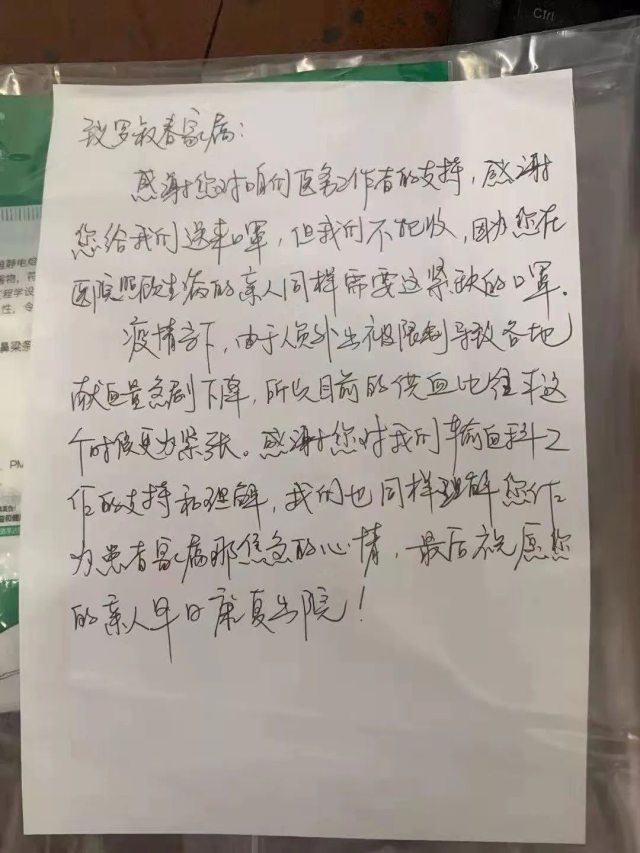 致罗叔春家属：
感谢您对咱们医务工作者的支持，感谢
您给我们送来口罩，但我们不能收，因为您在
医院照顾生病的亲人同样需要这紧缺的口罩。
疫情之下，由于人员外出被限制导致各地
献血量急剧下降，所以目前的供血比往年这
个时候更为紧张。感谢您对我们输血科工
作的支持和理解，我们也同样理解您作
为患者家属那焦急的心情，最后祝愿您
的亲人早日康复出院！
Ctrl
鼻梁条
PM